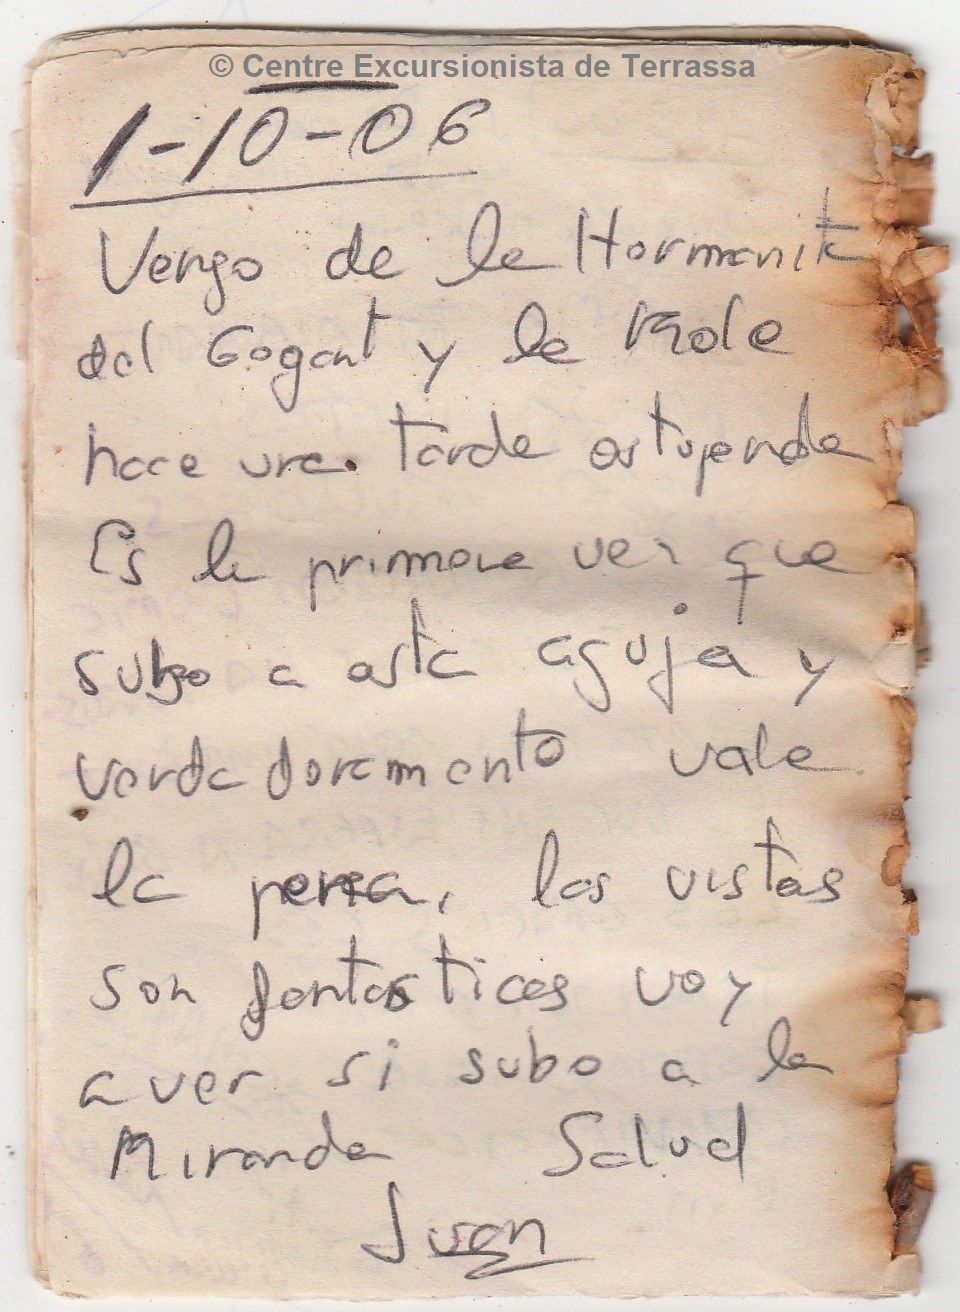 © Centre Excursionista de Terrassa
1-10-06
Vengo de la Hermanita
del Gegant y la Mole
hace una tarde estupenda
Es la primera vez que
subo a esta aguja y
verdaderamente vale
la pena, las vistas
son fantasticas voy
a ver si subo a la
Miranda Salud
Juan